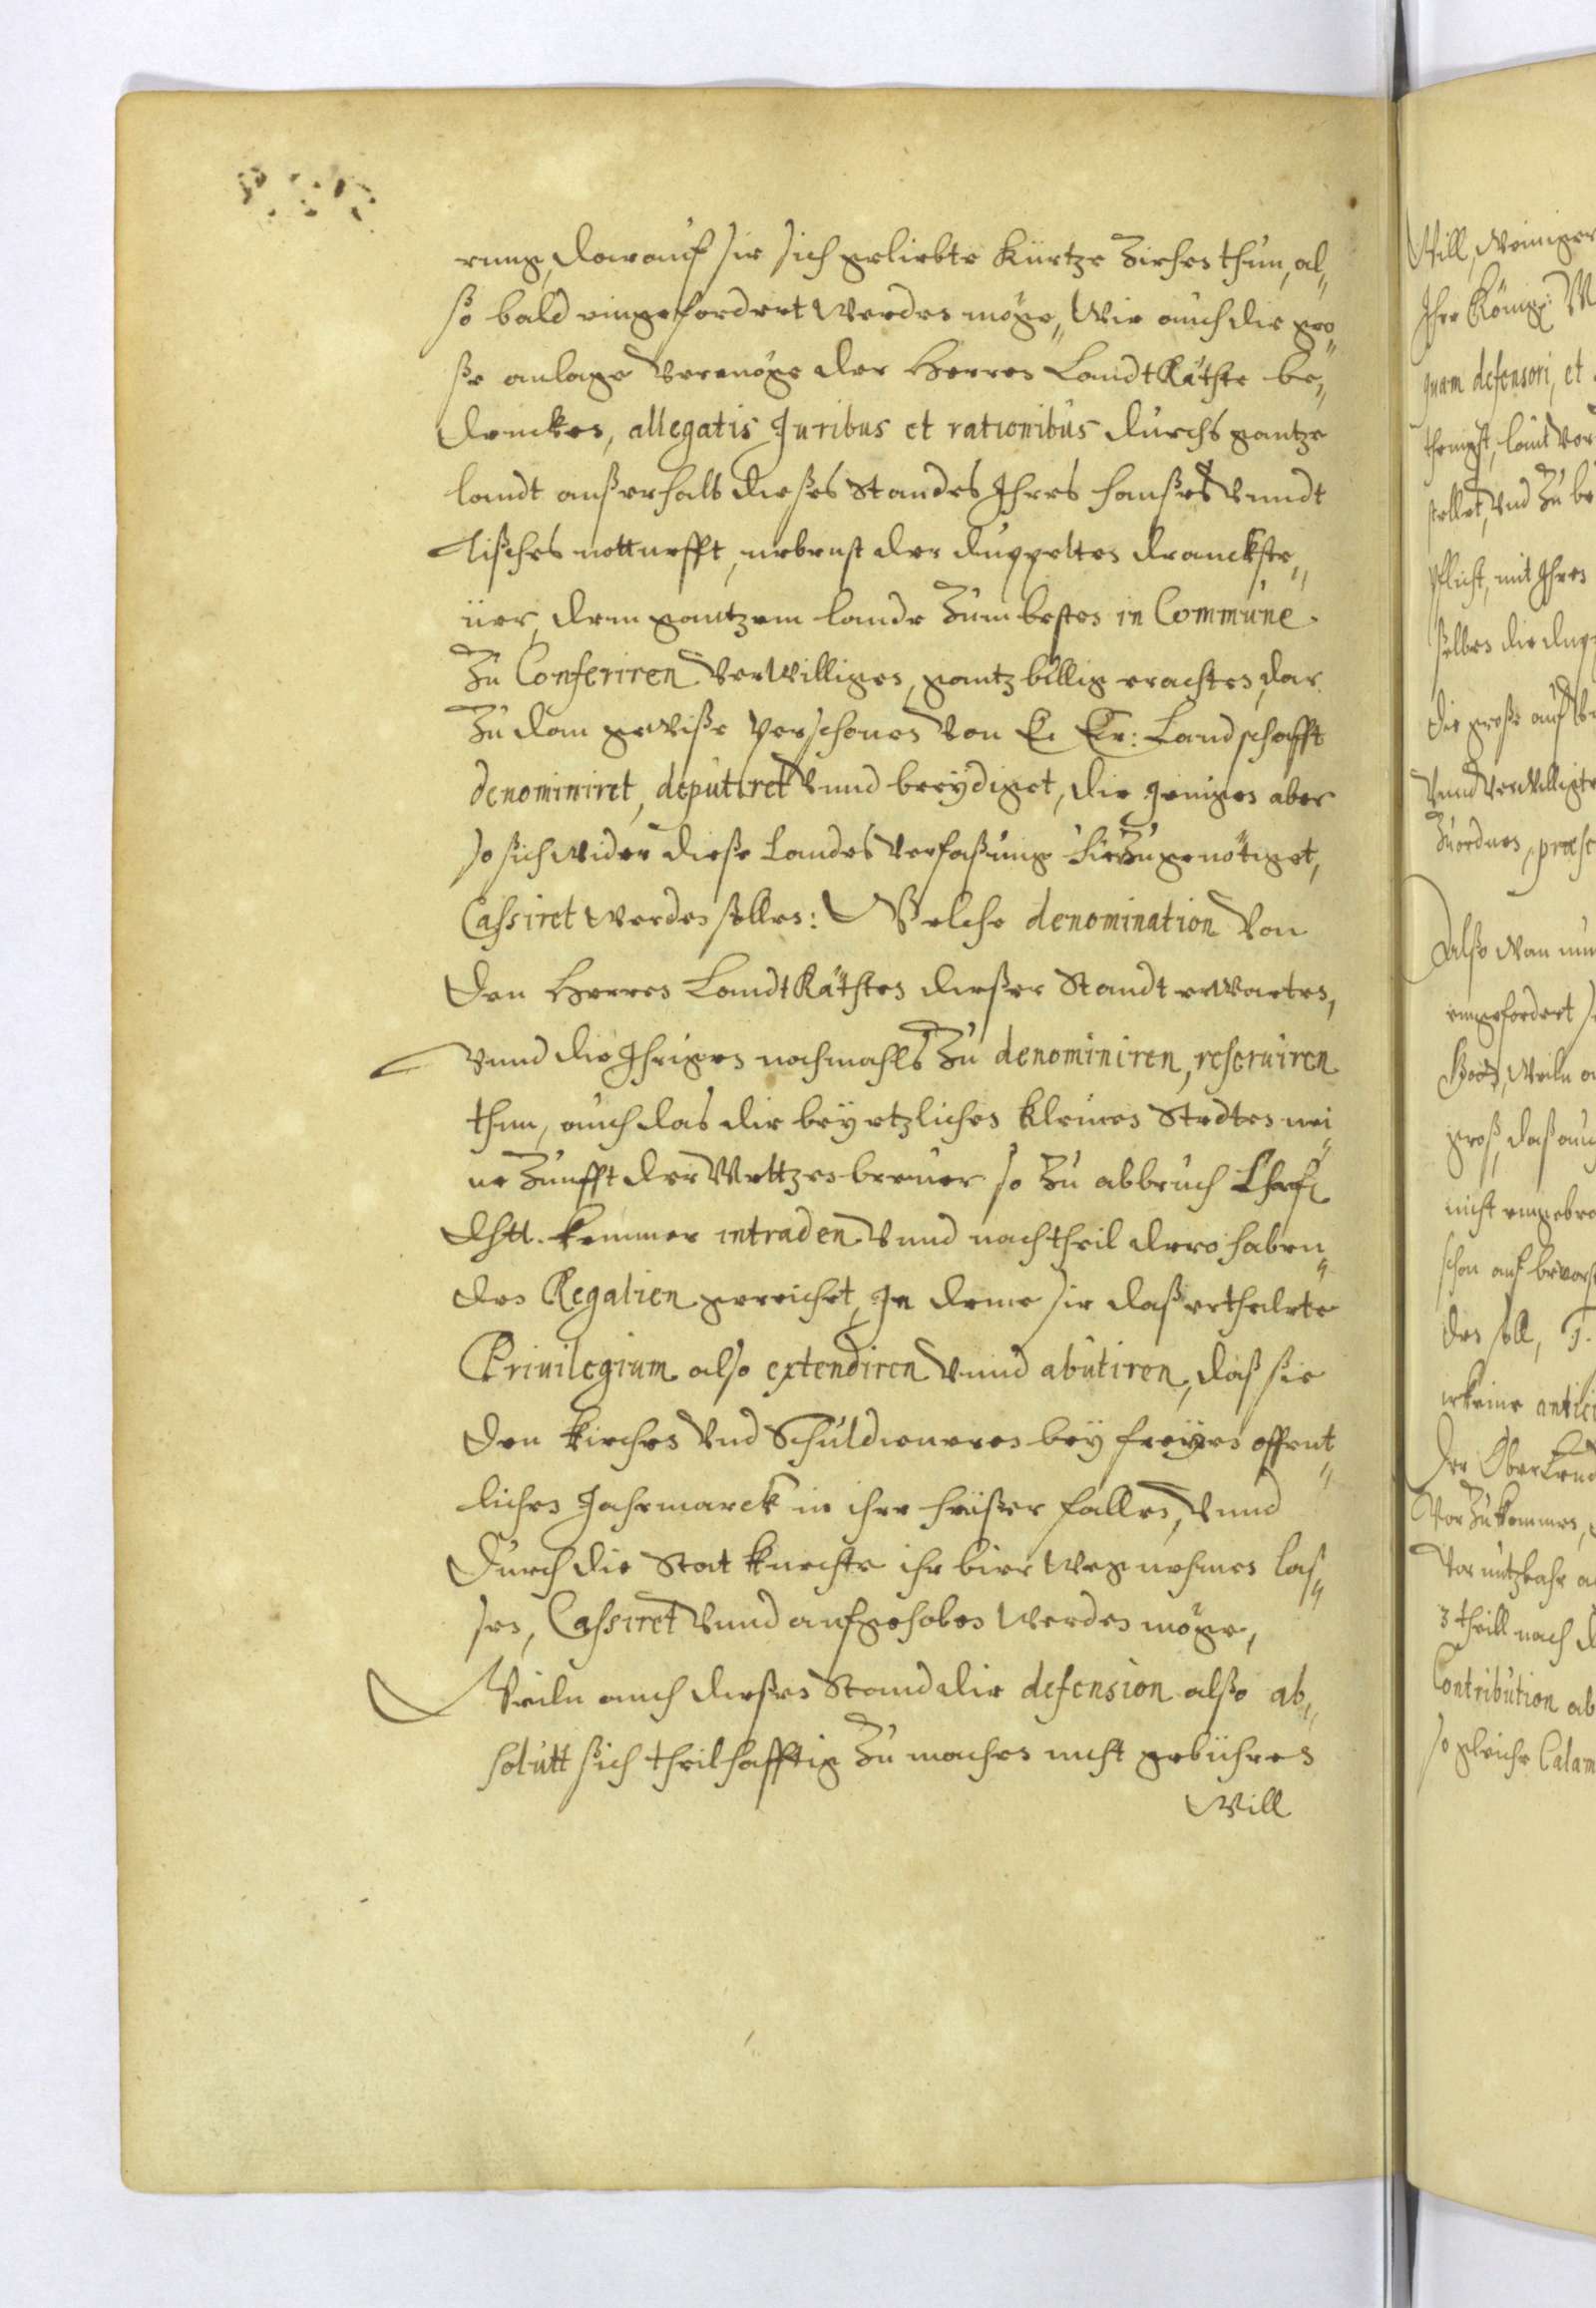 rung, darauf sie sich geliebte kürtze ziehen thun, al„
so bald eingefordert werden möge, Wie auch die gro„
ße anlage vermöge der Herren LandtRäthe be„
dencken, allegatis Juribus et rationibus durchs gantze
landt außerhalb dießes Standes Ihres haußes vnndt
tisches notturfft, nebenst der duppelten tranckste„
üer, dem gantzem lande zum besten in Commune
Zu Conferiren verwilligen, gantz billig erachten, dar
Zu dan gewiße Personen von E. Er: Landschafft
denominiret, deputiret vnnd beeydiget, die Jenigen aber
so sich wider dieße Landes verfaßung hierzu genötiget,
Cassiret werden sollen: Welche denomination von
den Herren LandtRäthen dießer Standt erwarten,
vnnd die Ihrigen nochmahls zu denominiren, reseruiren
thun, auch das die beyetzlichen kleinen Stedten nei„
ne Zunfft der Meltzenbreuer so zu abbruch Churf.
Dhtt. kammer intraden vnnd nachtheil dero haben„
den Regalien gereichet, In deme sie daß ertheilete
Priuilegium also extendiren vnnd abutiren, daß sie
den kirchen vnd Schuldieneren bey freyen offent„
lichen Jahrmarck in ihre heüßer fallen, vnnd
durch die Stat knechte ihr bier weg nehmen las„
sen, Cassiret vnnd aufgehoben werden möge,
Weiln auch dießen Stand die defension also ab„
solutt sich theilhafftig zu machen nicht gebühren
Will
Will, Weiniger
Ihr König: M
quam defensori, et
laut
stellet, vnd zu be
Pflicht, mit Ihren
selben die dup
die große auf
vnnd verwilligte
Zuordnen, præse
Dalso man nun
eingefordert
weiln
groß, daß auch
nicht eingebra
schon auf
den soll,
keine antici
der Ober
Vor zu kommen,
3 theill nach
Contribution ab
so gleiche Calam